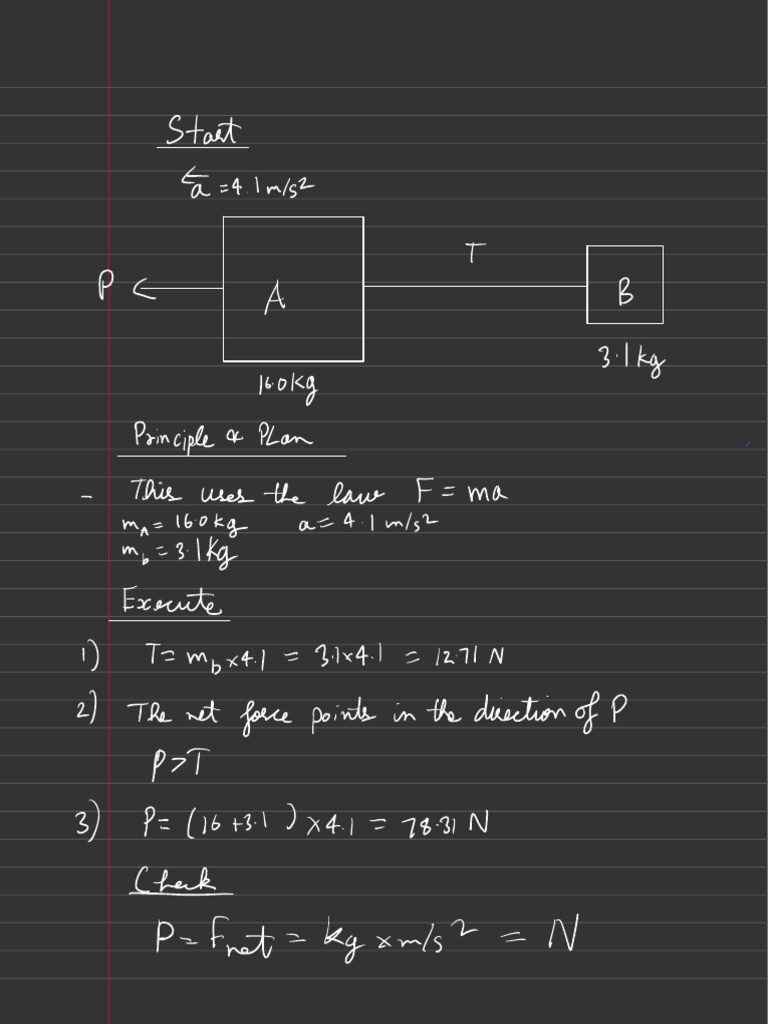 Start
a = 4.1 m/s²
T
P
A
B
16.0kg
3.1kg
Principle & PLan
- This uses the law F = ma
mA = 16.0kg a = 4.1 m/s²
mb = 3.1kg
Execute
1) T = mb × 4.1 = 3.1×4.1 = 12.71 N
2) The net force points in the direction of P
P>T
3) P = (16 + 3.1) × 4.1 = 78.31 N
Check
P = Fnet = kg × m/s² = N